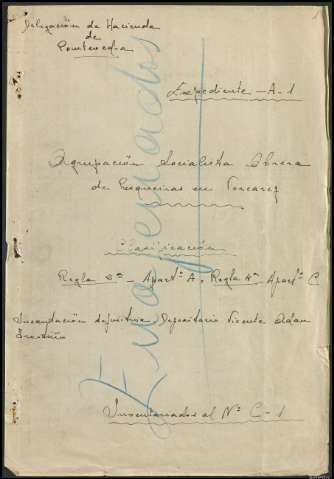 Delegación de Hacienda
de
Pontevedra
Expediente - A-1
Agrupación Socialista Obrera
de Pesqueiras en Forcarey
Clasificación
Regla 2ª - Apartº A, Regla 4ª Apartº C
Incautación definitiva, Depositario Vicente Adan
Inventariados al Nº C-1